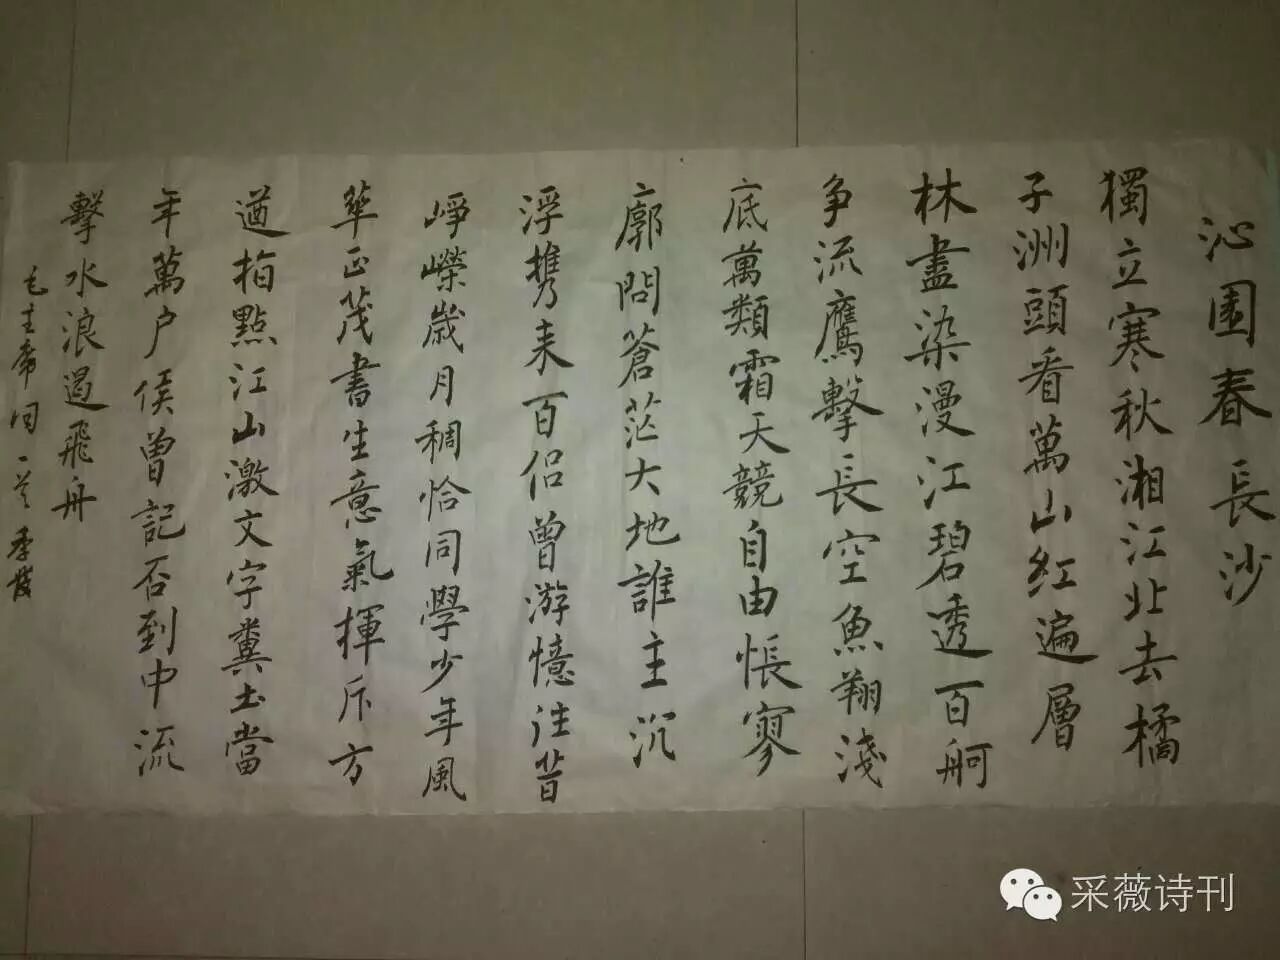 沁園春長沙
獨立寒秋湘江北去橘
子洲頭看萬山紅遍層
林盡染漫江碧透百舸
争流鷹擊長空魚翔淺
底萬類霜天競自由悵寥
廓問蒼茫大地誰主沉
浮攜来百侣曾游憶往昔
崢嶸歲月稠恰同學少年風
華正茂書生意氣揮斥方
遒指點江山激文字糞土當
年萬户侯曾記否到中流
擊水浪遏飛舟
毛主席词一首
采薇诗刊